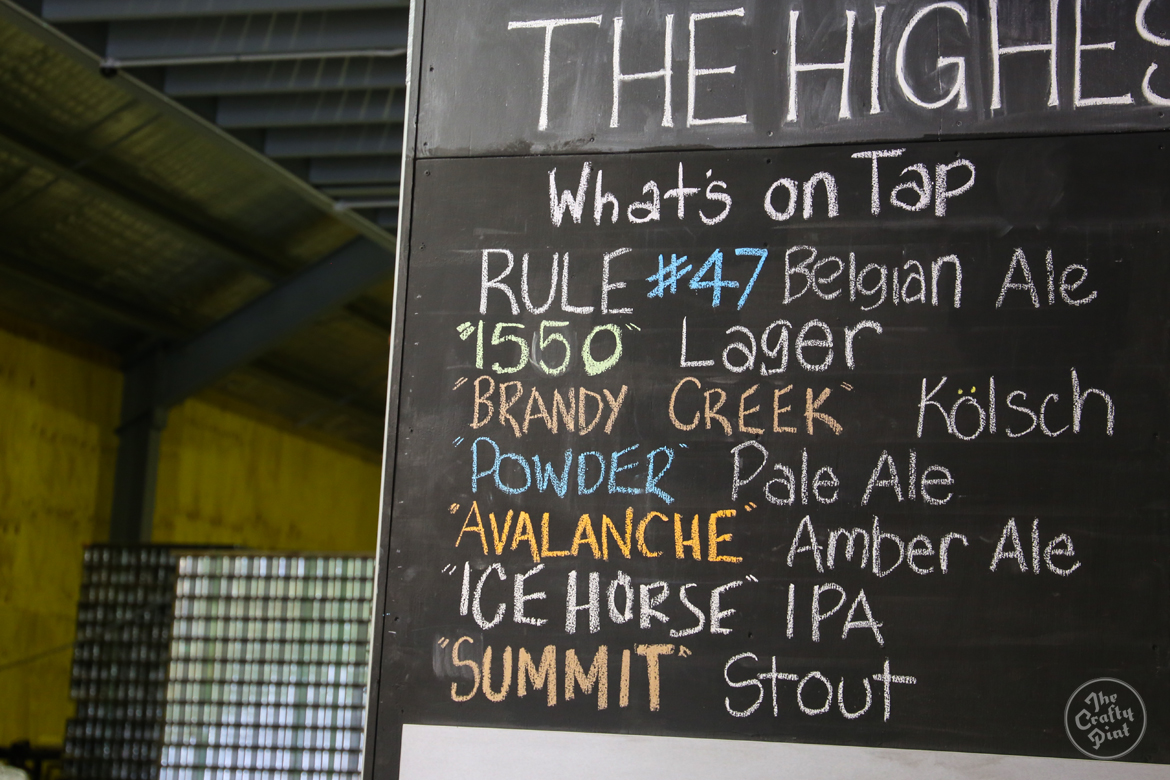 THE HIGHES
What's on Tap
RULE #47 Belgian Ale
"1550" Lager
"BRANDY CREEK" Kölsch
"POWDER" Pale Ale
"AVALANCHE" Amber Ale
"ICE HORSE" IPA
"SUMMIT" Stout
The
Crafty
Pint